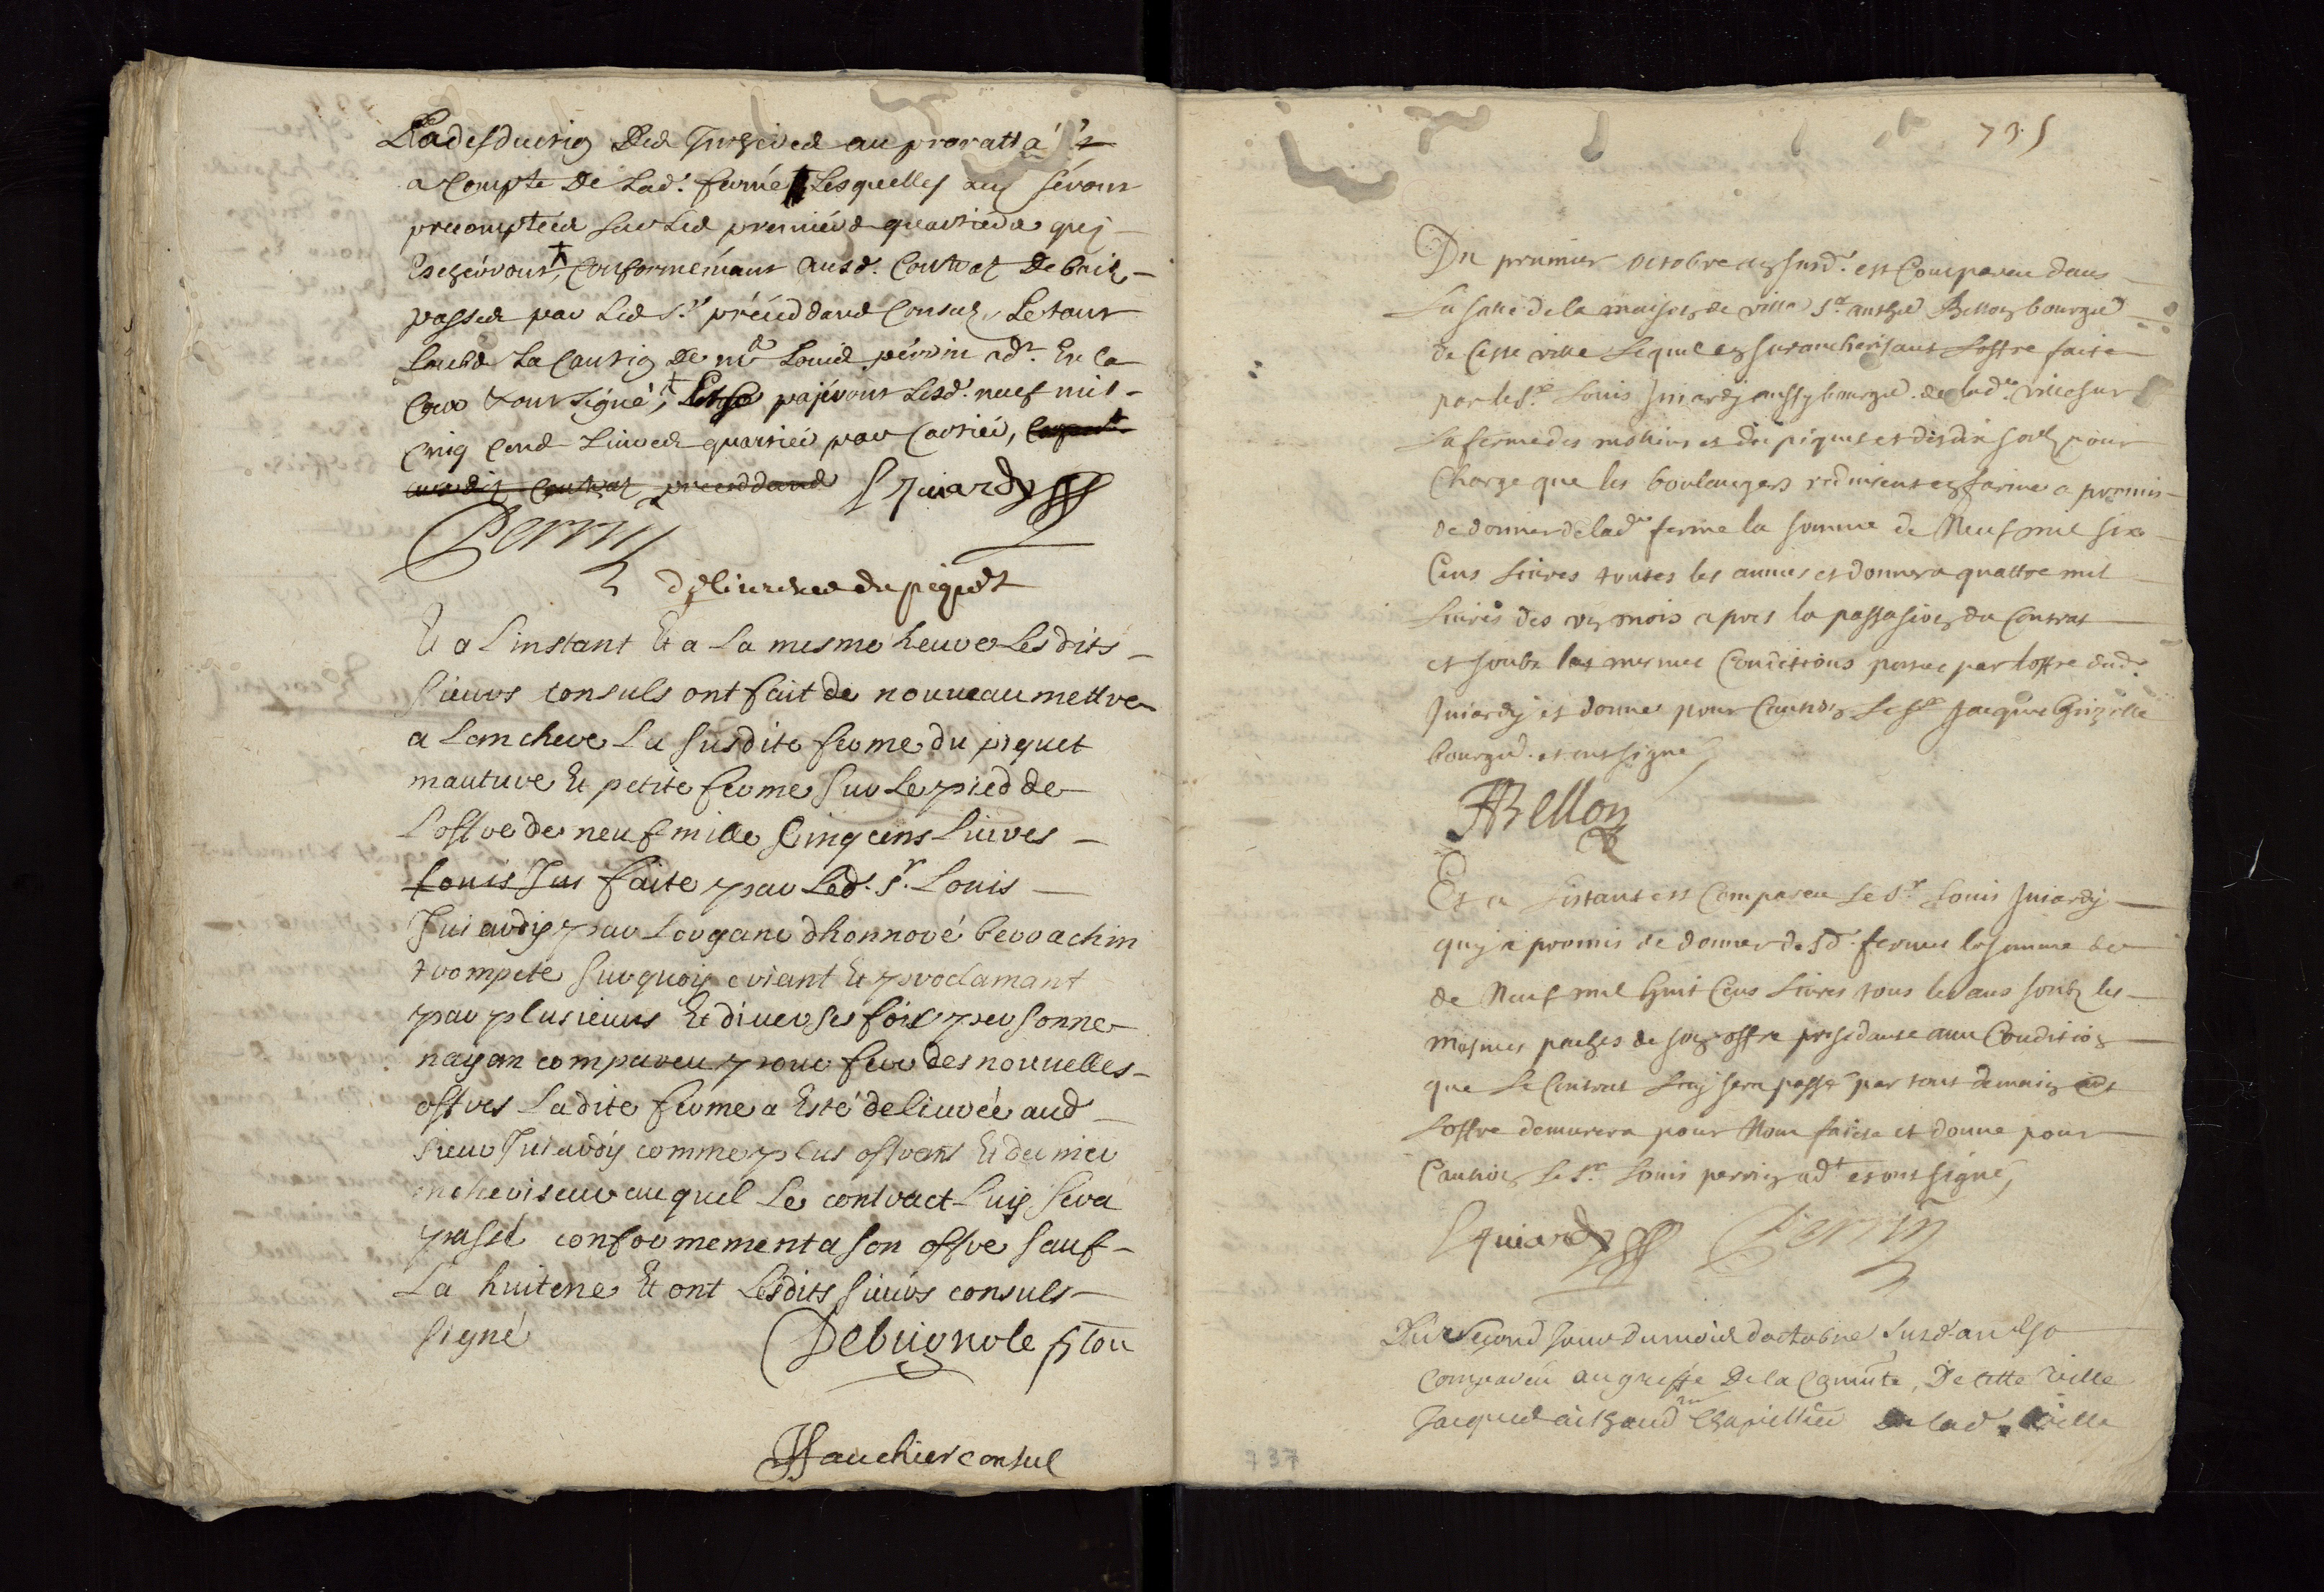 Ladesduction des Jnthereds au proratta &
a Compte De Lad.e ferme Lesquelles luy seront
precomptées sur Les premiers quartiers quj
Escherront, Conformémant ausd. Contrat De bail
passés par Les Srs précéddans Consuls, Le tout
soubs La Caution De mre Louis perrin adt. En la
Cour & ont signé, Et se pajeront Lesd. neuf mil
Cinq Cens Liures quartier par Cartier,
susdit Contrat preceddand Jujardy
Perrin
Deliurence du piquet
Et a Linstant Et a La mesme heure Lesdits
sieurs consuls ont fait de nouueau mettre
a Lanchere La susdite ferme du piquet
mauture Et petite ferme sur Le pied de
Loffre de neuf mille Cinq cens Liures
Louis Jui faite par Led. Sr. Louis
Juiardy par Lorgane dhonnoré berrachin
trompete surquoy criant Et proclamant
par plusieurs Et diuerses fois personne
nayan compareu pour fere des nouuelles
offres Ladite ferme a Esté deliurée aud
sieur Juiardy comme plus offrant Et dernier
encheriseur auquel Le contract Luy sera
passé conformement a son offre sauf
La huitene Et ont Lesdits sieurs consuls
signé Debrignole Con
FFauchier consul
735
Du premier octobre an susd. est Compareu dans
La salle de la maison de ville Sr. anthoe Bellon bourgeo
de Ceste ville Lequel en surancherisant Loffre faite
par le Sr. Louis Juiardy aussy bourgeo. de lad.e ville sur
La ferme des molins et du piquet et des dix solz pour
Charge que les boulangers reduisent en farine a promis
de donner de lad.e ferme la somme de Neuf mil six
Cens Liures toutes les années et donnera quattre mil
Liures des un mois apres la passasion du Contrat
et soubz les mesmes Conditions portée par loffre dud.
Juiardy et donne pour Caution Le Sr Jacques Grizolle
bourgeo. et ont signé
ABellon
Et a Listant est Compareu le Sr. Louis Juiardy
quj a promis de donner de sd. ferme la somme de
de Neuf mil huit Cens Liures tous les ans soubz les
mesmes paches de son offre presedante aux Condition
que Le Contrat Luy sera passé par tout demain et
Loffre demurera pour Nom faicte et donne pour
Caution Le Sr. Louis perrin adt et ont signé
Jujardy Perrin
Du Segond Jour du mois doctobre susd. an Est
Compareu au greffe De la Comunté, De Cette Ville
Jacques Chapellier De lad. Ville
737